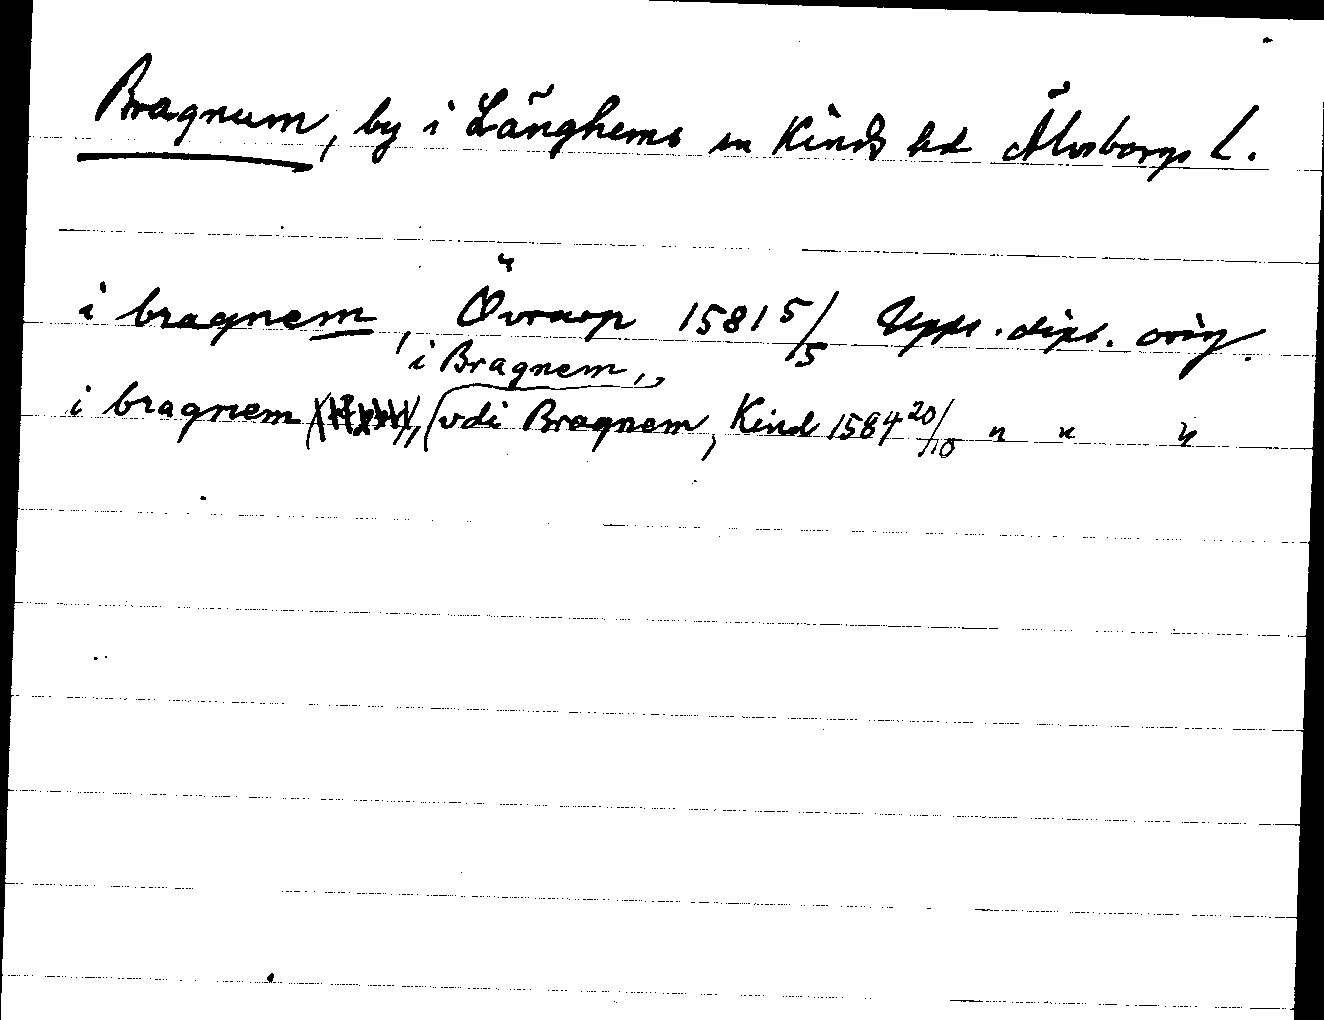 Bragnum, by i Länghems sn Kinds hd Älvsborgs L.
i bragnem, Övraarp 1581 5/5 Upps. dipl. orig.
i Bragnem,,
i bragnem vdi Bragnem, Kind 1584 20/10 " " "